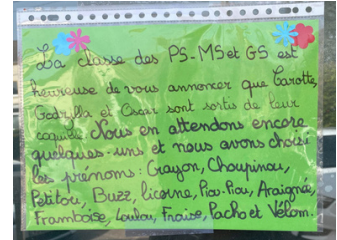 La classe des PS-MS et GS est
heureuse de vous annoncer que Carotte,
Godzilla et Oscar sont sortis de leur
coquille. Nous en attendons encore
quelques-uns et nous avons choisi
les prénoms : Crayon, Choupinou,
Petitou, Buzz, licorne, Piou-Piou, Araignée,
Framboise, Loulou, Fraise, Pacho et Vélom.